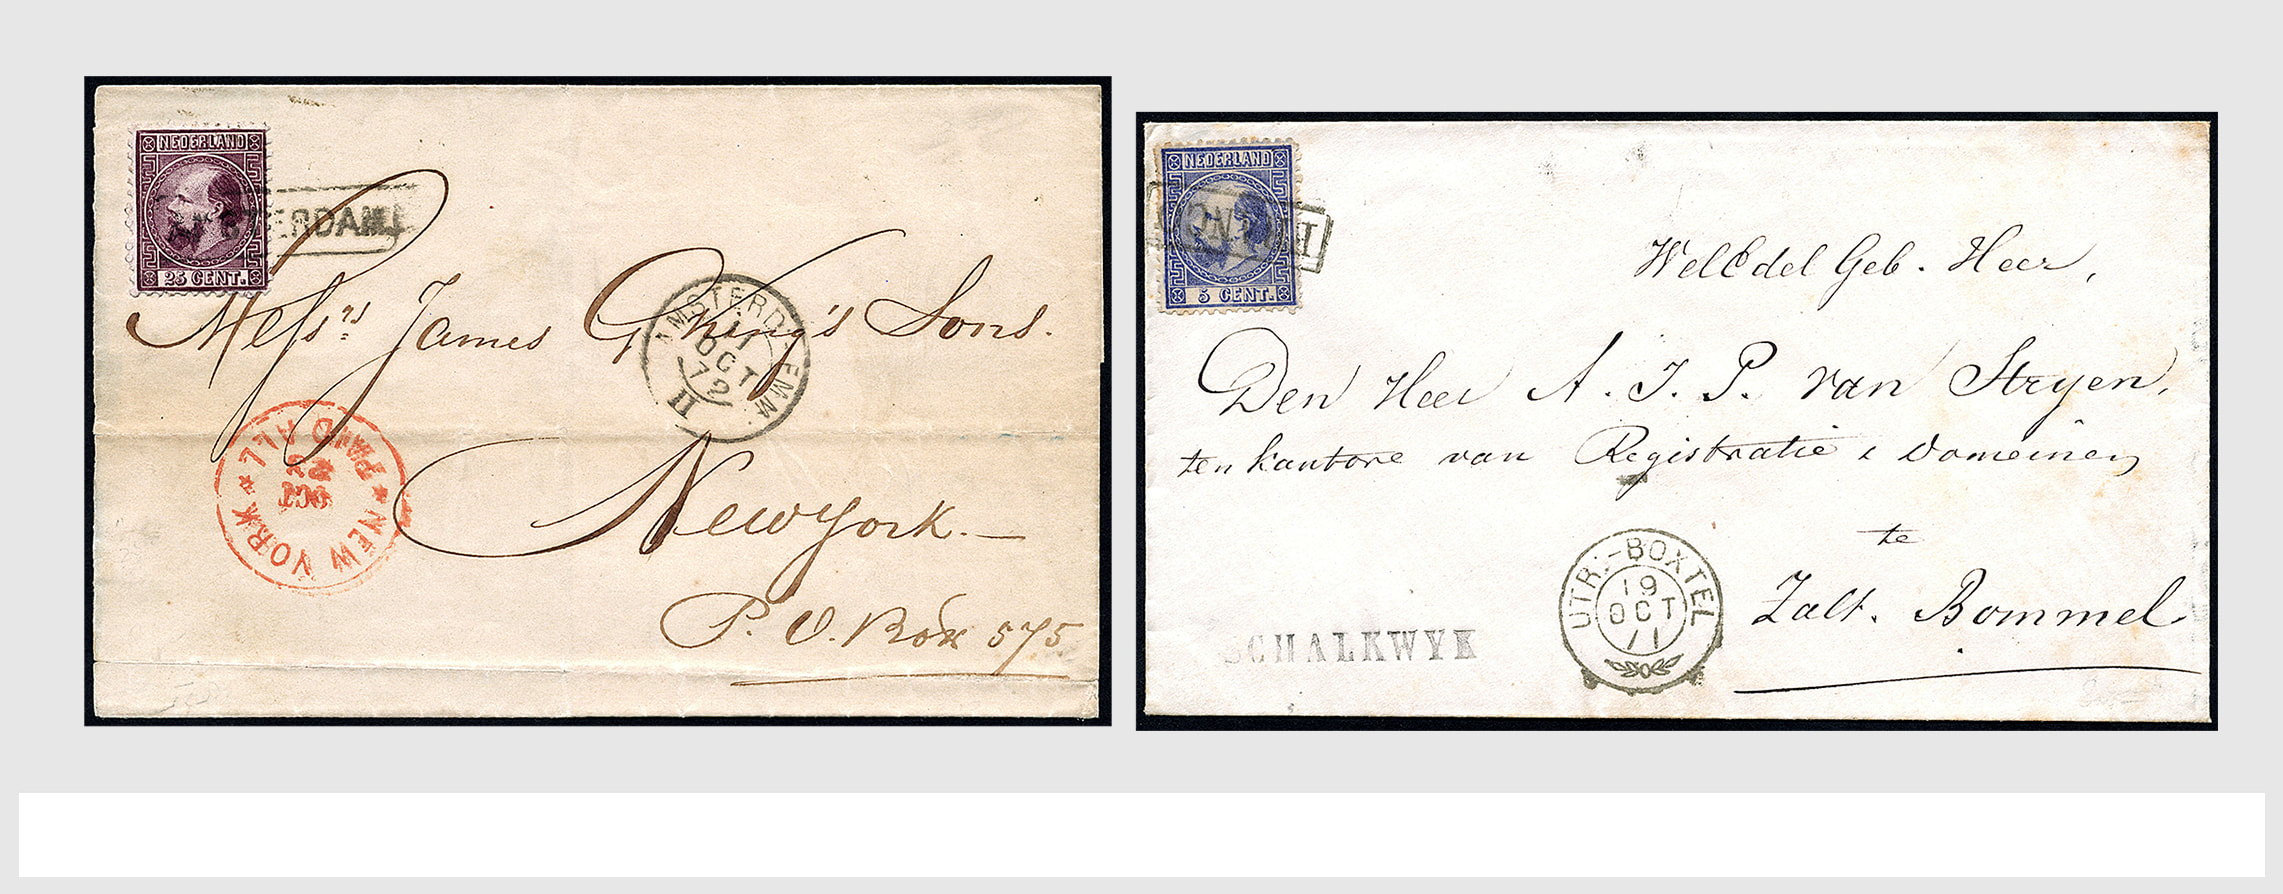 NEDERLAND
25 CENT.
AMSTERDAM
Messrs James G King's Sons.
AMSTERD.-EMM.
11
OCT
72
II
NEW YORK
PAID ALL
OCT
23
New York.—
P. O. Box 575
NEDERLAND
5 CENT.
WelEdel Geb. Heer,
Den Heer A. J. P. van Stryen,
ten kantore van Registratie & Domeinen
te
Zalt. Bommel
UTR.-BOXTEL
19
OCT
71
SCHALKWYK